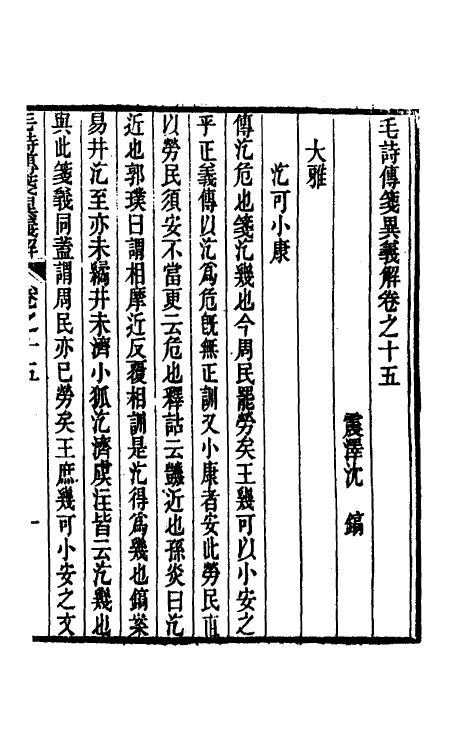 毛詩傳箋異義解卷之十五
震澤沈　鎬
大雅
汔可小康
傳汔危也箋汔幾也今周民罷勞矣王幾可以小安之
乎正義傳以汔爲危旣無正訓又小康者安此勞民直
以勞民須安不當更云危也釋詁云譏近也孫炎曰汔
近也郭璞曰謂相摩近反覆相訓是汔得爲幾也鎬案
易井汔至亦未繘井未濟小狐汔濟虞注皆云汔幾也
與此箋義同蓋謂周民亦已勞矣王庶幾可小安之文
毛詩傳箋異義解　卷之十五　一